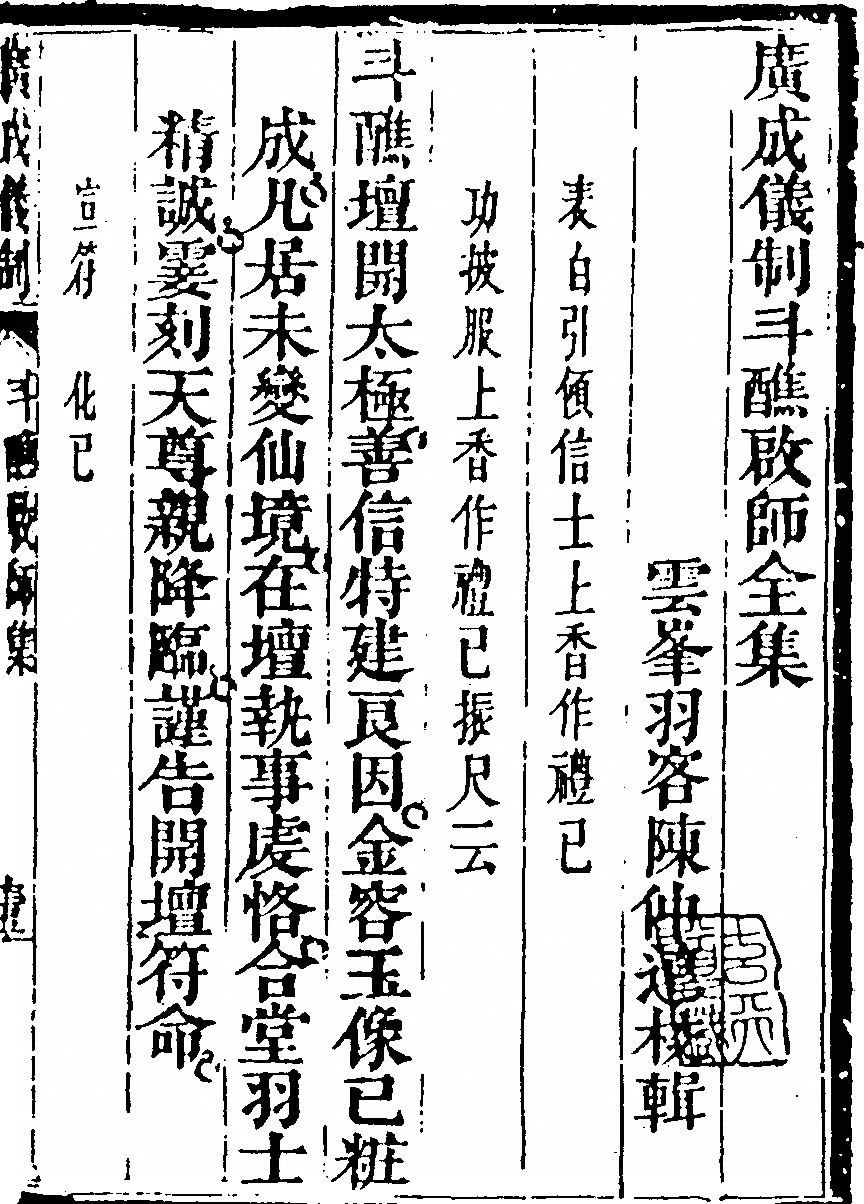 廣成儀制斗醮啟師全集
雲峯羽客陳仲遠校輯
表白引領信士上香作禮已
功披服上香作禮已振尺云
斗醮壇開太極善信特建良因金容玉像已粧
成凡居未變仙境在壇執事虔恪合堂羽士
精誠霎刻天尊親降臨謹告開壇符命
宣符　化已
廣成儀制　斗醮啟師集